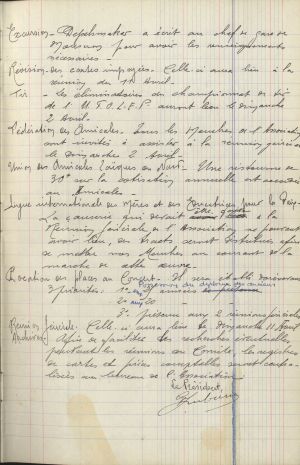 Excursion - Defechmaker a écrit au chef de gare de
pour avoir les renseignements
nécessaires -
Révision des cartes impayées. Celle-ci aura lieu à la
réunion du 11 Avril -
Tir - Les éliminatoires du championnat de tir
de l'U.F.O.L.E.P. auront lieu le dimanche
2 Avril -
Fédération des Amicales. Tous les Membres de l'Association
sont invités à assister à la réunion générale
le dimanche 2 Avril -
Union des Amicales Laïques du Nord - Une ristourne de
30% sur la cotisation annuelle est accordée
aux Amicales
Ligue internationale des Mères et des Educatrices pour la Paix -
La causerie qui devait être à la
Réunion familiale de l'Association ne pouvant
avoir lieu, des tracts seront distribués afin
de mettre nos Membres au courant de la
marche de cette œuvre -
places au Concert - Il sera établi dorénavant
3 priorités:
3° présence aux 2 réunions familiales
Réunion familiale. Celle-ci aura lieu le dimanche 11 Avril
Archives. Afin de faciliter les recherches éventuelles
pendant les réunions du Comité, les registres
de cartes et pièces comptables seront
au bureau de l'Association
Le Président,